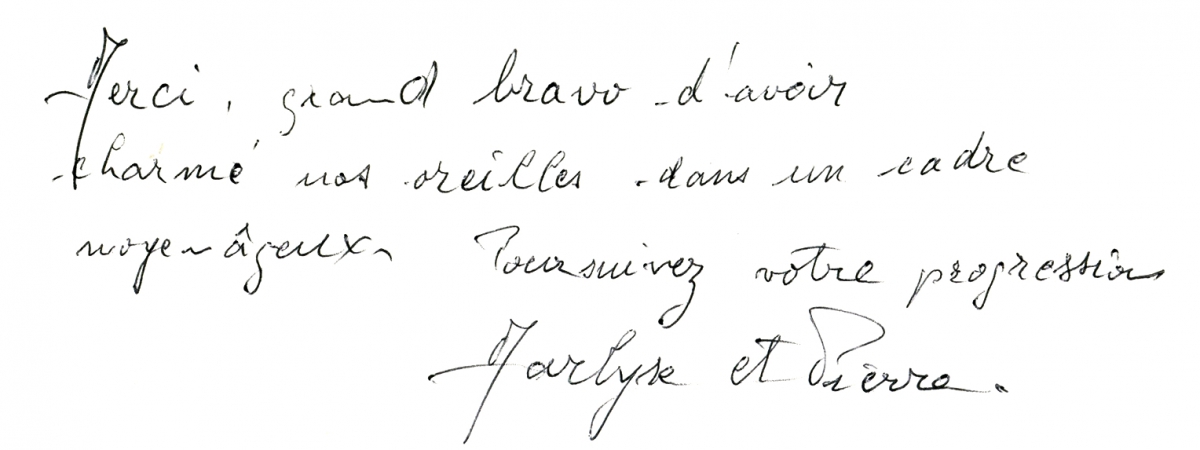 Merci, grand bravo d'avoir
charmé nos oreilles dans un cadre
moyen-âgeux. Poursuivez votre progression
Marlyse et Pierre.